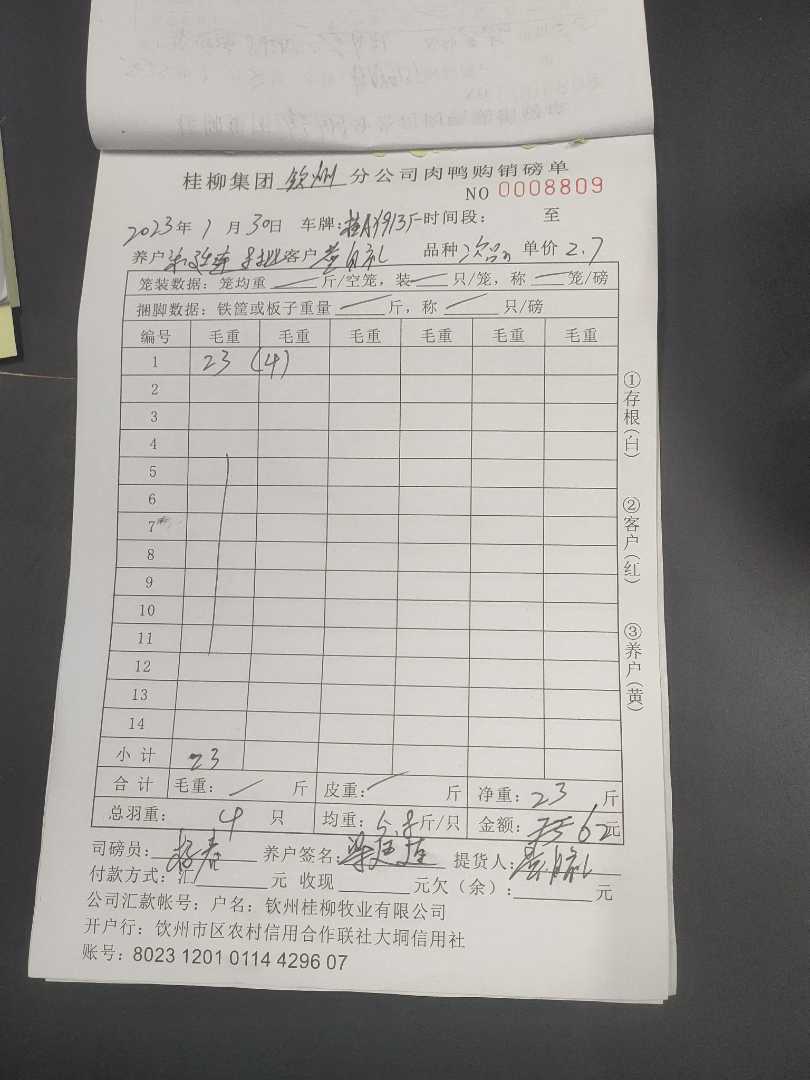 桂柳集团 钦州 分公司肉鸭购销磅单
NO 0008809
2023年 1 月 30日 车牌: 时间段: 至
养户 客户 品种 次品 单价 2.7
笼装数据: 笼均重 斤/空笼, 装 只/笼, 称 笼/磅
捆脚数据: 铁筐或板子重量 斤, 称 只/磅
编号 毛重 毛重 毛重 毛重 毛重 毛重
1 23 (4)
2
3
4
5
6
7
8
9
10
11
12
13
14
小计 23
合计 毛重: 斤 皮重: 斤 净重: 23 斤
总羽重: 4 只 均重: 5.8斤/只 金额: 62元
司磅员: 养户签名: 提货人:
付款方式: 汇 元 收现 元欠(余): 元
公司汇款帐号: 户名: 钦州桂柳牧业有限公司
开户行: 钦州市区农村信用合作联社大垌信用社
账号: 8023 1201 0114 4296 07
①存根(白)
②客户(红)
③养户(黄)